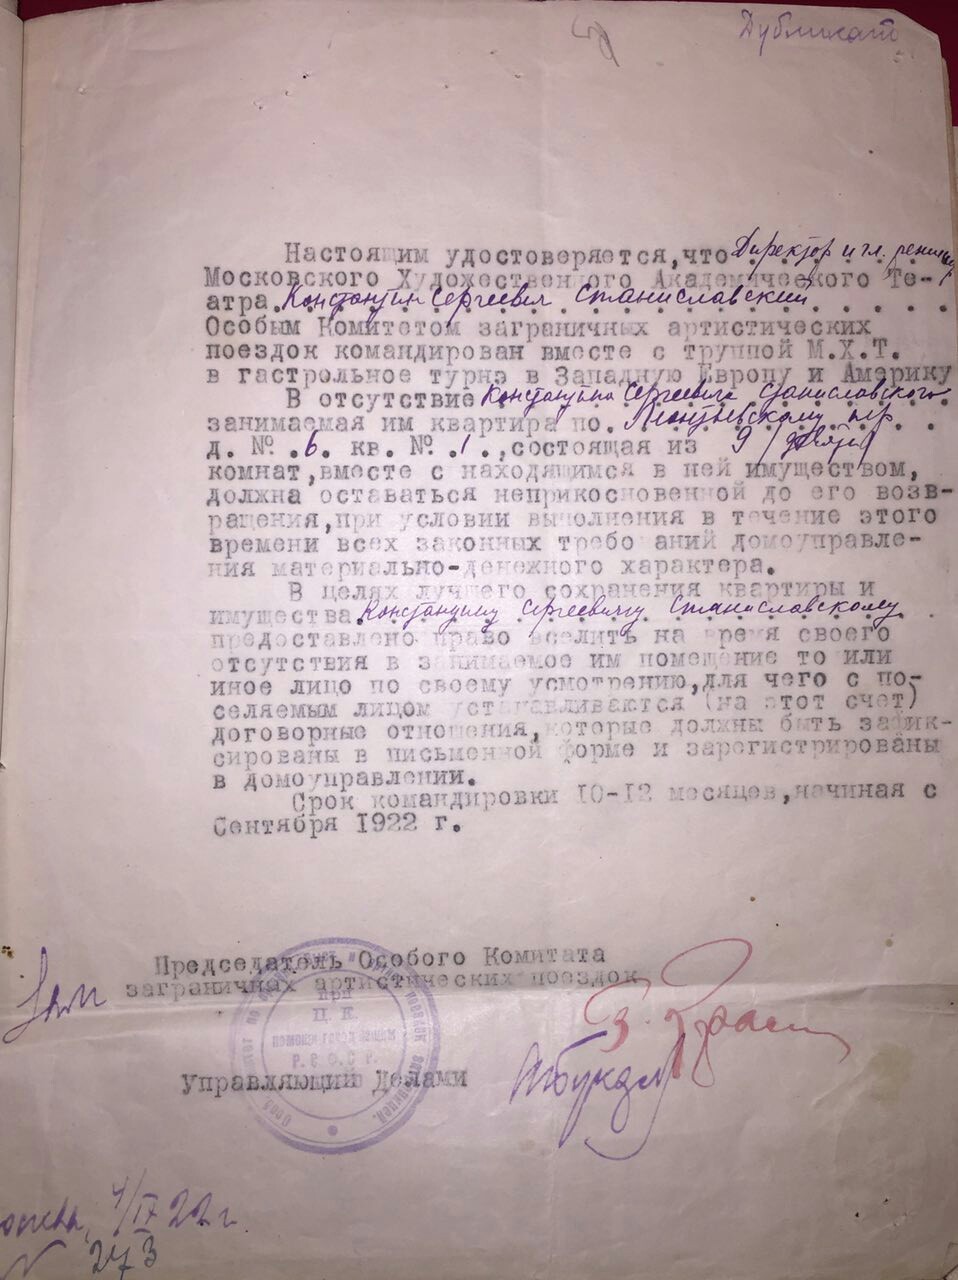 Дубликат
Настоящим удостоверяется,что Директор и гл. режиссер
Московского Художественного Академического Те-
атра Константин Сергеевич Станиславский
Особым Комитетом заграничных артистических
поездок командирован вместе с труппой М.Х.Т.
в гастрольное турнэ в Западную Европу и Америку
В отсутствие Константина Сергеевича Станиславского
занимаемая им квартира по. Леонтьевскому пер.
д. №.6. кв. №.1.,состоящая из 9 /девяти/
комнат,вместе с находящимся в ней имуществом,
должна оставаться неприкосновенной до его возв-
ращения,при условии выполнения в течение этого
времени всех законных требований домоуправле-
ния материально-денежного характера.
В целях лучшего сохранения квартиры и
имущества Константину Сергеевичу Станиславскому
предоставлено право вселить на время своего
отсутствия в занимаемое им помещение то или
иное лицо по своему усмотрению,для чего с по-
селяемым лицом устанавливаются (на этот счет)
договорные отношения,которые должны быть зафик-
сированы в письменной форме и зарегистрированы
в домоуправлении.
Срок командировки 10-12 месяцев,начиная с
Сентября 1922 г.
Зам
Председатель Особого Комитата
заграничнах артистических поездок
при
Ц.К.
помощи голодающим
Р.С.Ф.С.Р.
Управляющий Делами
4/IX 22 г.
N 273